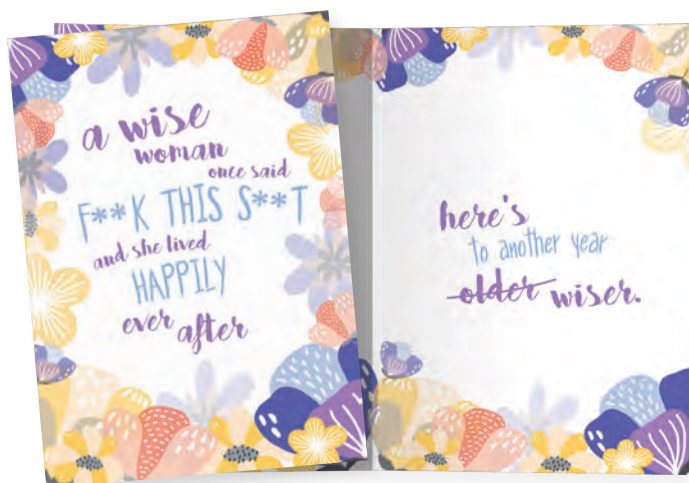 a wise
woman
once said
F**K THIS S**T
and she lived
HAPPILY
ever after
here's
to another year
older wiser.